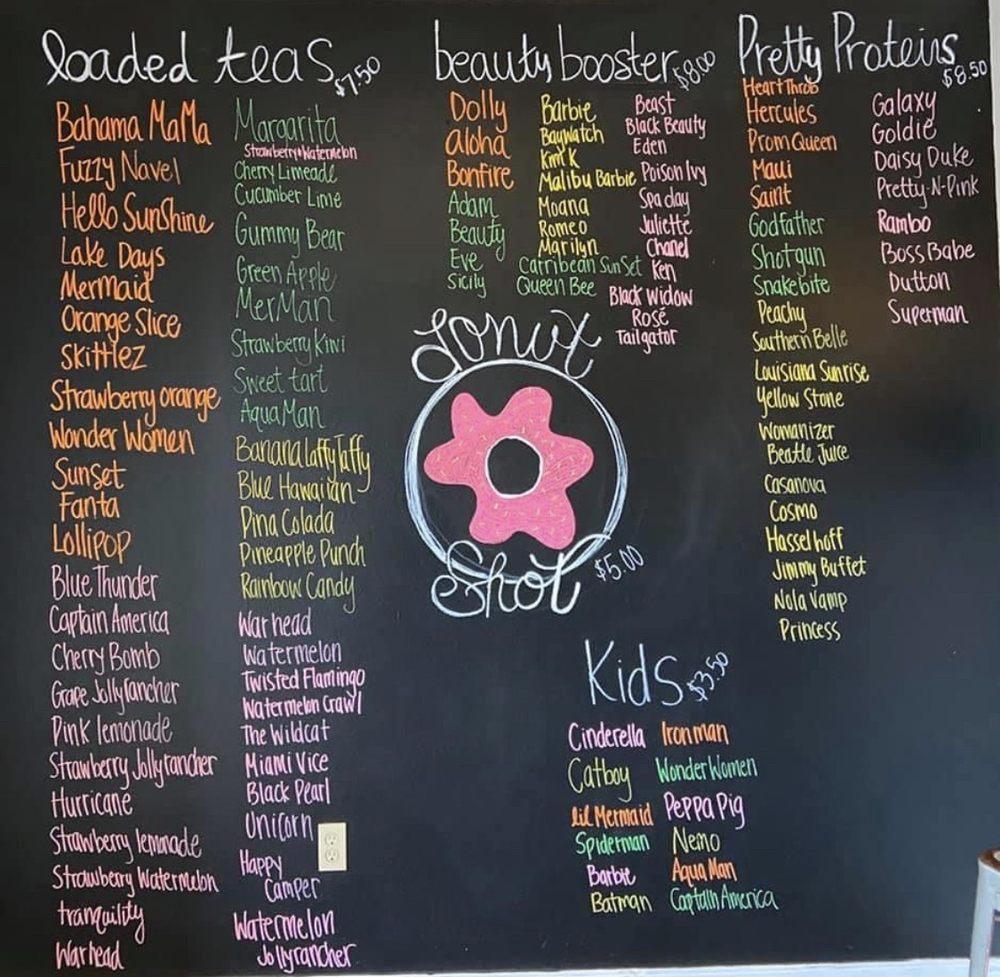 loaded teas $7.50
Bahama MaMa
Fuzzy Navel
Hello SunShine
Lake Days
Mermaid
Orange Slice
SKittlez
Strawberry orange
Wonder Women
Sunset
Fanta
Lollipop
Blue Thunder
Captain America
Cherry Bomb
Grape Jollyrancher
Pink lemonade
Strawberry Jollyrancher
Hurricane
Strawberry lemonade
Strawberry Watermelon
tranquility
Warhead
Margarita
Strawberry & Watermelon
Cherry Limeade
Cucumber Lime
Gummy Bear
Green Apple
MerMan
Strawberry Kiwi
Sweet tart
AquaMan
Banana Laffy Taffy
Blue Hawaiian
Pina Colada
Pineapple Punch
Rainbow Candy
Warhead
Watermelon
Twisted Flamingo
Watermelon Crawl
The Wildcat
Miami Vice
Black Pearl
Unicorn
Happy
Camper
Watermelon
Jollyrancher
beauty booster $8.00
Dolly
aloha
Bonfire
Adam
Beauty
Eve
Sicily
Barbie
Baywatch
Kim K
Malibu Barbie
Moana
Romeo
Marilyn
Carribean SunSet
Queen Bee
Beast
Black Beauty
Eden
Poison Ivy
Spa day
Juliette
Chanel
Ken
Black Widow
Rosé
Tailgator
donut
Shot $5.00
Kids $3.50
Cinderella
Catboy
lil Mermaid
Spiderman
Barbie
Batman
Ironman
Wonder Women
Peppa Pig
Nemo
Aqua Man
Captain America
Pretty Proteins $8.50
Heart Throb
Hercules
Prom Queen
Maui
Saint
Godfather
Shotgun
Snakebite
Peachy
Southern Belle
Louisiana Sunrise
Yellow Stone
Womanizer
Beatle Juice
Casanova
Cosmo
Hasselhoff
Jimmy Buffet
Nola Vamp
Princess
Galaxy
Goldie
Daisy Duke
Pretty-N-Pink
Rambo
Boss Babe
Dutton
Superman